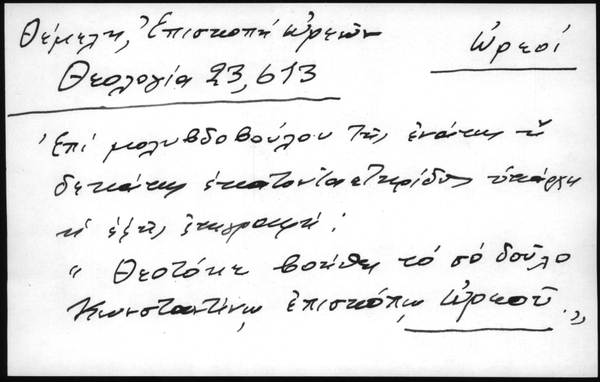 Θέμελη, Ἐπισκοπή Ὠρεῶν
Ὠρεοί
Θεολογία 23, 613
Ἐπί μολυβδοβούλου τῆς ἐνάτης ἤ
δεκάτης ἑκατονταετηρίδος ὑπάρχει
ἡ ἑξῆς ἐπιγραφή:
" Θεοτόκε βοήθει τό σό δούλο
Κωνσταντίνῳ ἐπισκόπῳ Ὠρεοῦ."